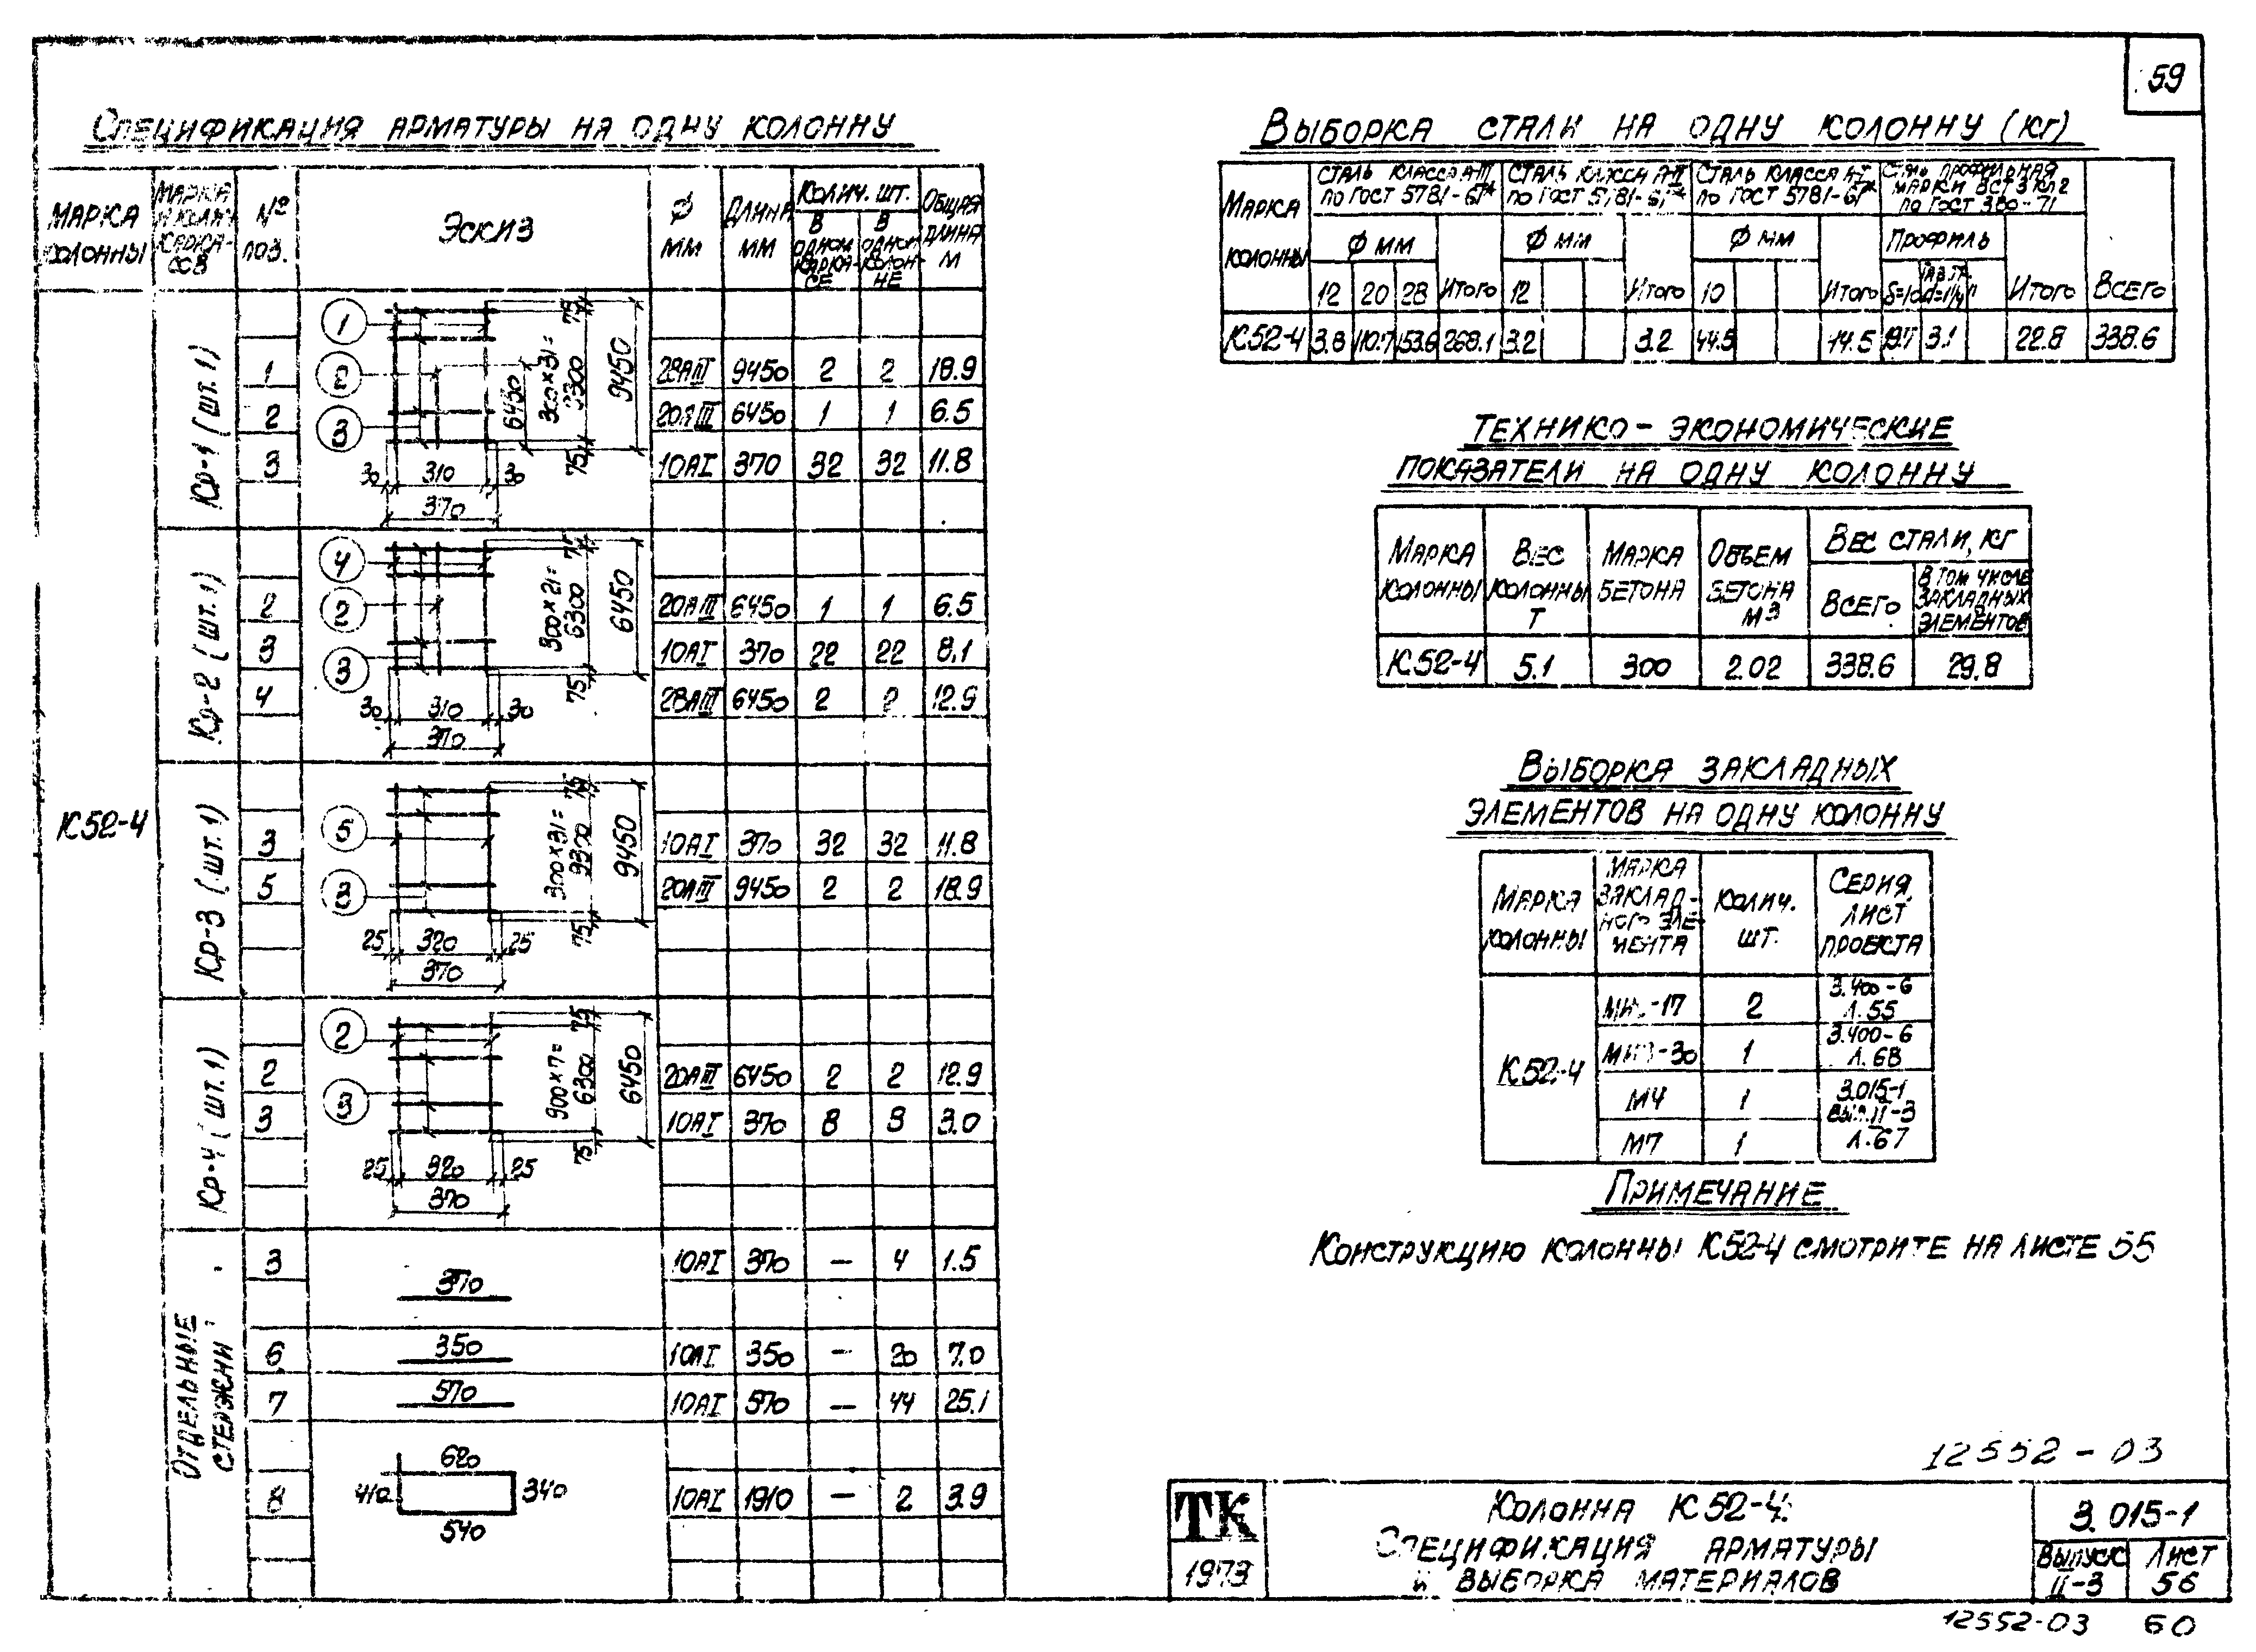 59
Спецификация арматуры на одну колонну
Марка колонны
Марка и колич. каркасов
№ поз.
Эскиз
Ф мм
Длина мм
Колич. шт.
в одном каркасе
в одной колонне
Общая длина м
К52-4
Кр-1 (шт. 1)
1 28АIII 9450 2 2 18.9
2 20АIII 6450 1 1 6.5
3 10АI 370 32 32 11.8
1 2 3
75 300×31= 9300 75 9450 6450
30 310 30
370
Кр-2 (шт. 1)
2 20АIII 6450 1 1 6.5
3 10АI 370 22 22 8.1
4 28АIII 6450 2 2 12.9
4 2 3
75 300×21= 6300 75 6450
30 310 30
370
Кр-3 (шт. 1)
3 10АI 370 32 32 11.8
5 20АIII 9450 2 2 18.9
5 3
75 300×31= 9300 75 9450
25 320 25
370
Кр-4 (шт. 1)
2 20АIII 6450 2 2 12.9
3 10АI 370 8 8 3.0
2 3
75 900×7= 6300 75 6450
25 320 25
370
Отдельные стержни
3 370 10АI 370 — 4 1.5
6 350 10АI 350 — 20 7.0
7 570 10АI 570 — 44 25.1
8 620 410 340 540 10АI 1910 — 2 3.9
Выборка стали на одну колонну (кг)
Марка колонны
Сталь класса А-III по ГОСТ 5781-61*
Сталь класса А-II по ГОСТ 5781-61*
Сталь класса А-I по ГОСТ 5781-61*
Сталь профильная марки ВСт3кп2 по ГОСТ 380-71
Ф мм Ф мм Ф мм Профиль
12 20 28 Итого 12 Итого 10 Итого δ=10 d=1¼" Итого Всего
К52-4 3.8 110.7 153.6 268.1 3.2 3.2 44.5 44.5 19.7 3.1 22.8 338.6
Технико-экономические
показатели на одну колонну
Марка колонны
Вес колонны Т
Марка бетона
Объем бетона м3
Вес стали, кг
Всего
В том числе закладных элементов
К52-4 5.1 300 2.02 338.6 29.8
Выборка закладных
элементов на одну колонну
Марка колонны
Марка закладного элемента
Колич. шт.
Серия, лист проекта
К52-4
2 3.400-6 л.55
1 3.400-6 л.68
М4 1
М7 1
3.015-1 вып.II-3 л.67
Примечание
Конструкцию колонны К52-4 смотрите на листе 55
12552-03
ТК
1973
Колонна К52-4.
Спецификация арматуры
и выборка материалов
3.015-1
Выпуск II-3
Лист 56
12552-03 60